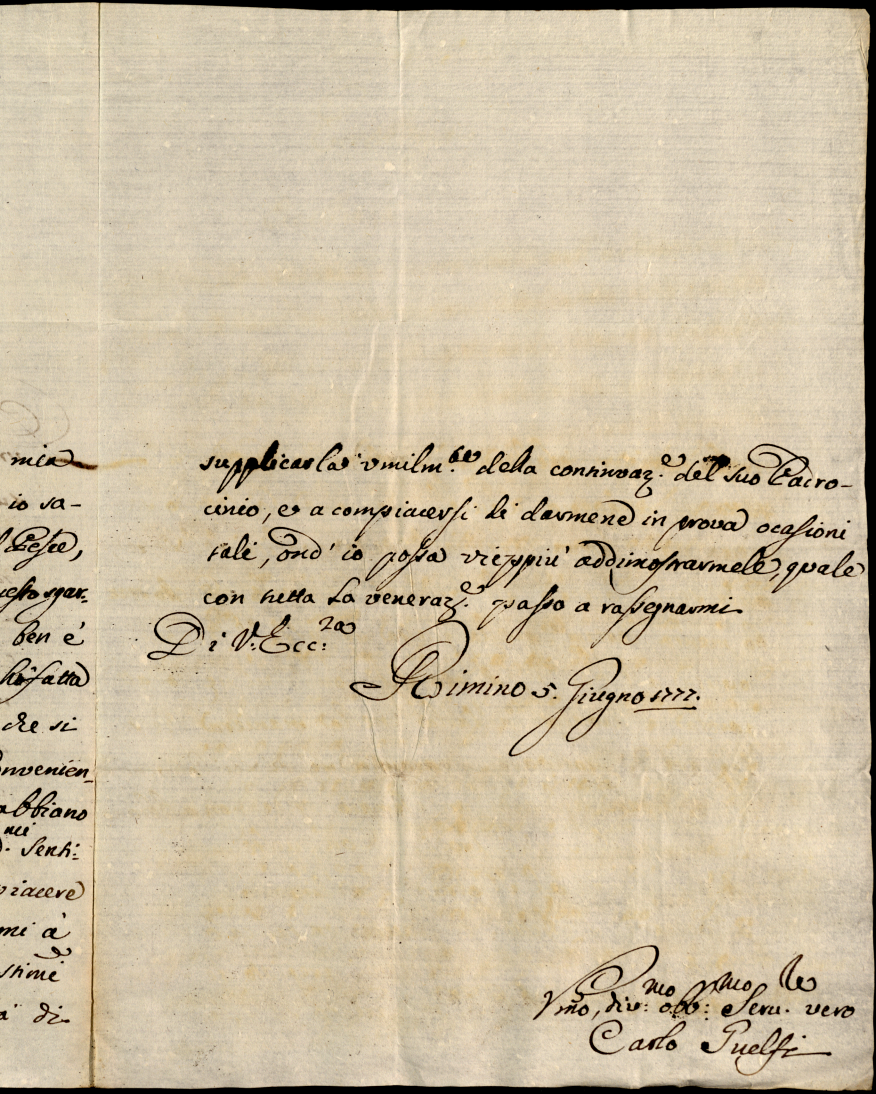 mia
io sa-
Pesce,
ben è
hò fatta
che si
onvenien-
abbiano
Senti:
piacere
mi à
stime
à di
supplicarla umilm.te della continuaz.e del suo Patro-
cinio, e a compiacersi di darmene in prova ocasioni
tali, ond' io possa vieppiù addimostrarmele, quale
con tutta la veneraz.e passo a rassegnarmi
Di V: Ecc:za
Rimino 5. Giugno 1777.
Vmo, div:mo obb:mo Seru.re vero
Carlo Guelfi